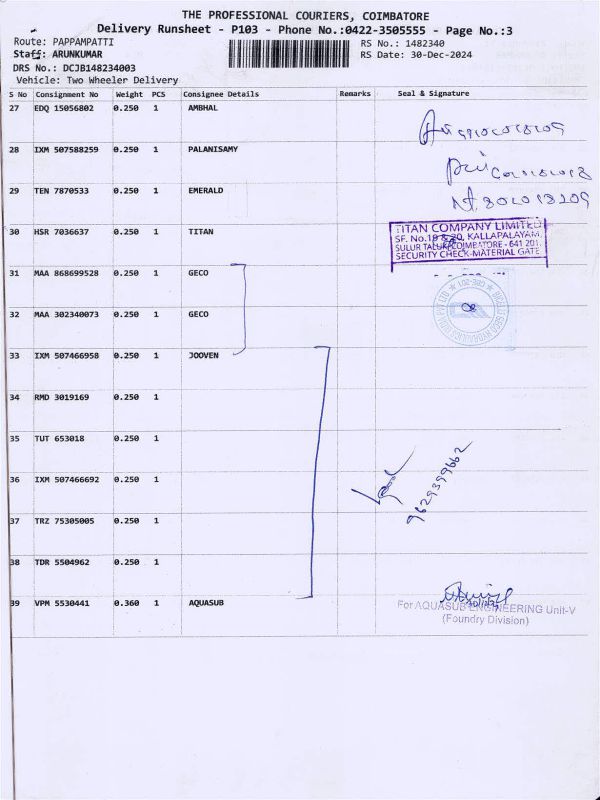 THE PROFESSIONAL COURIERS, COIMBATORE
Delivery Runsheet - P103 - Phone No.:0422-3505555 - Page No.:3
Route: PAPPAMPATTI
Staff: ARUNKUMAR
DRS No.: DCJB148234003
Vehicle: Two Wheeler Delivery
RS No.: 1482340
RS Date: 30-Dec-2024
S No Consignment No Weight PCS Consignee Details Remarks Seal & Signature
27 EDQ 15056802 0.250 1 AMBHAL
28 IXM 507588259 0.250 1 PALANISAMY
29 TEN 7870533 0.250 1 EMERALD
30 HSR 7036637 0.250 1 TITAN
TITAN COMPANY LIMITED
SF. No.19 & 20, KALLAPALAYAM,
SULUR TALUK, COIMBATORE - 641 201.
SECURITY CHECK-MATERIAL GATE
31 MAA 868699528 0.250 1 GECO
32 MAA 302340073 0.250 1 GECO
33 IXM 507466958 0.250 1 JOOVEN
34 RMD 3019169 0.250 1
35 TUT 653018 0.250 1
36 IXM 507466692 0.250 1
9629399662
37 TRZ 75305005 0.250 1
38 TDR 5504962 0.250 1
39 VPM 5530441 0.360 1 AQUASUB
For AQUASUB ENGINEERING Unit-V
(Foundry Division)